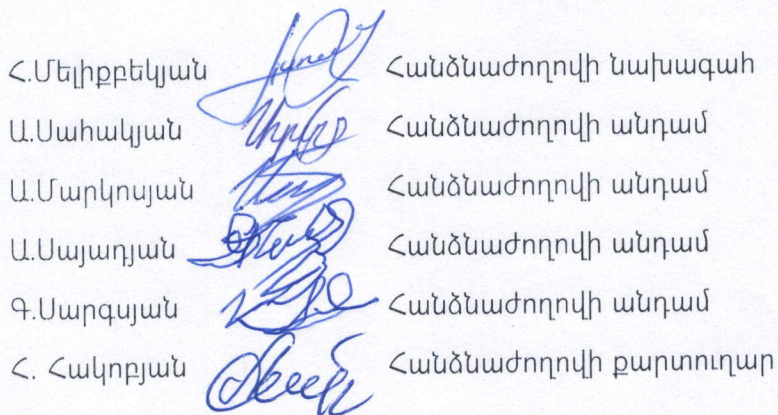 Հ.Մելիքբեկյան Հանձնաժողովի նախագահ
Ա.Սահակյան Հանձնաժողովի անդամ
Ա.Մարկոսյան Հանձնաժողովի անդամ
Ա.Սայադյան Հանձնաժողովի անդամ
Գ.Սարգսյան Հանձնաժողովի անդամ
Հ. Հակոբյան Հանձնաժողովի քարտուղար